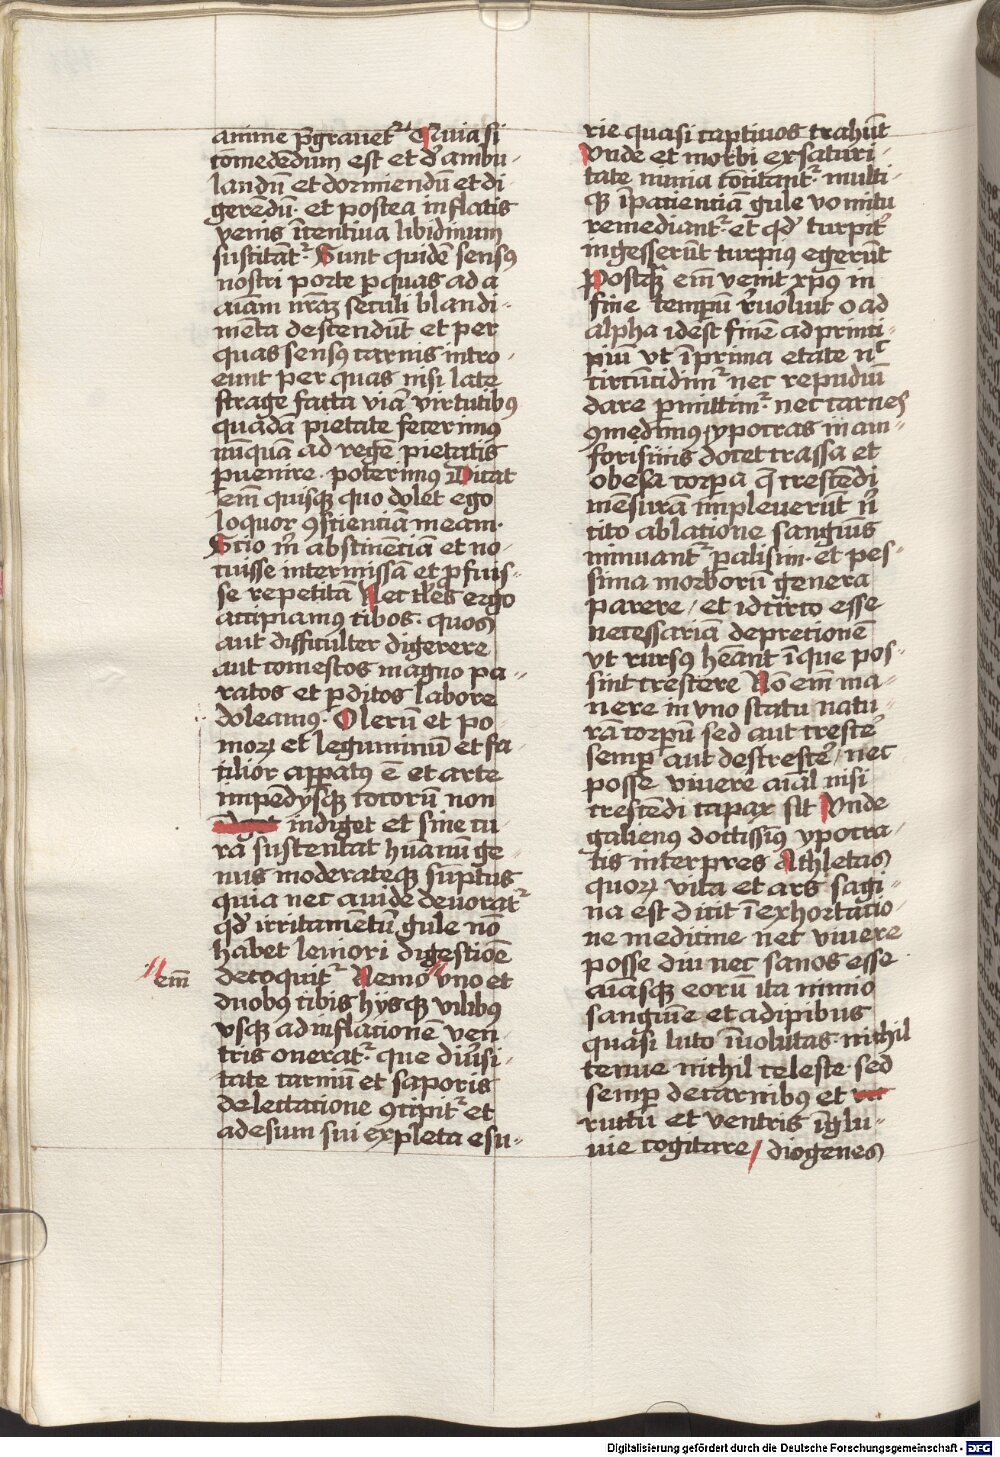 anime p̄grauet᷑ Quia si
comedēdum est et d̓ ambu-
landū et dormiendū et di
gerēdū· et postea inflatis
venis ītentiua libidinum
suscitāt᷑· Sunt quidē sensꝰ
nostri porte ꝑ quas ad a
aīam nr̄aꝫ seculi blandi-
mēta descendūt et per
quas sensꝰ carnis intro-
eunt per quas nisi late
strage facta viā virtutibꝰ
quādā pietate fecerimus
nūquā ad regē pietatis
ꝑuenire· poterimus Dicat
em̄ quisqꝫ quo dolet ego
loquor ꝯscientiā meam·
Scio m̄ abstinētiā et no-
cuisse intermissā et ꝓfuis-
se repetitā Nec tl̄es ergo
accipiamus cibos· quos
aut difficulter digerere
aut comestos magno pa-
ratos et ꝑditos labore
doleamus· Olerū et po-
moꝝ et leguminū et fa-
cilior apꝑatꝰ ē et arte
impēdijsqꝫ cocorū non
indiget et sine cu-
ra sustentat huānū ge-
nus moderateqꝫ sūptus
quia nec auide deuorat᷑
qd̓ irritamētū gule nō
habet leniori digestiōe
decoquit᷑ Nemo vno et
em̄
duobꝰ cibis hijsqꝫ vilibꝰ
vsqꝫ ad inflationē ven-
tris onerat᷑· que diūsi-
tate carniū et saporis
delectatione ꝯcipit᷑ et
adesum sui expleta esu-
rie quasi captiuos trahūt
Vnde et morbi ex saturi-
tate nimia cōcitant᷑· multi-
qꝫ īpatientiā gule vomitu
remediant᷑· et qd̓ turpit̓
ingesserūt turpius egerūt
Postqꝫ em̄ venit xp̄us in
fine tempū r̄uoluit o ad
alpha idest finē ad princi-
piū vt ī prima etate nc̄
circūcidim᷑ nec repudiū
dare ꝑmittim᷑· nec carnes
ꝯmedimus, ypocras in am-
forisimis docet crassa et
obesa corpa q̄ crescēdi
mēsurā impleuerūt n̄
cito ablatione sanguīs
minuant᷑ palisim· et pes-
sima morborū genera
parere / et idcirco esse
necessariā depretionē
vt rursꝰ hēant īque pos-
sint crescere Nō em̄ ma-
nere in vno statu natu-
rā corpū sed aut crescē
semp aut descrescē / nec
posse viuere aīal nisi
crescēdi capax sit Vnde
galienus doctissīꝰ ypocra-
tis interpres Athletas
quoꝝ vita et ars sagi-
na est dicit ī exhortatio-
ne medicine nec viuere
posse diu nec sanos esse·
aīasqꝫ eorū ita nimio
sanguine et adipibus
quasi luto īuolutas· nichil
tenue nichil celeste· sed
semp de carnibꝰ et
ructu et ventris īglu-
uie cogitare / diogenes
Digitalisierung gefördert durch die Deutsche Forschungsgemeinschaft - DFG